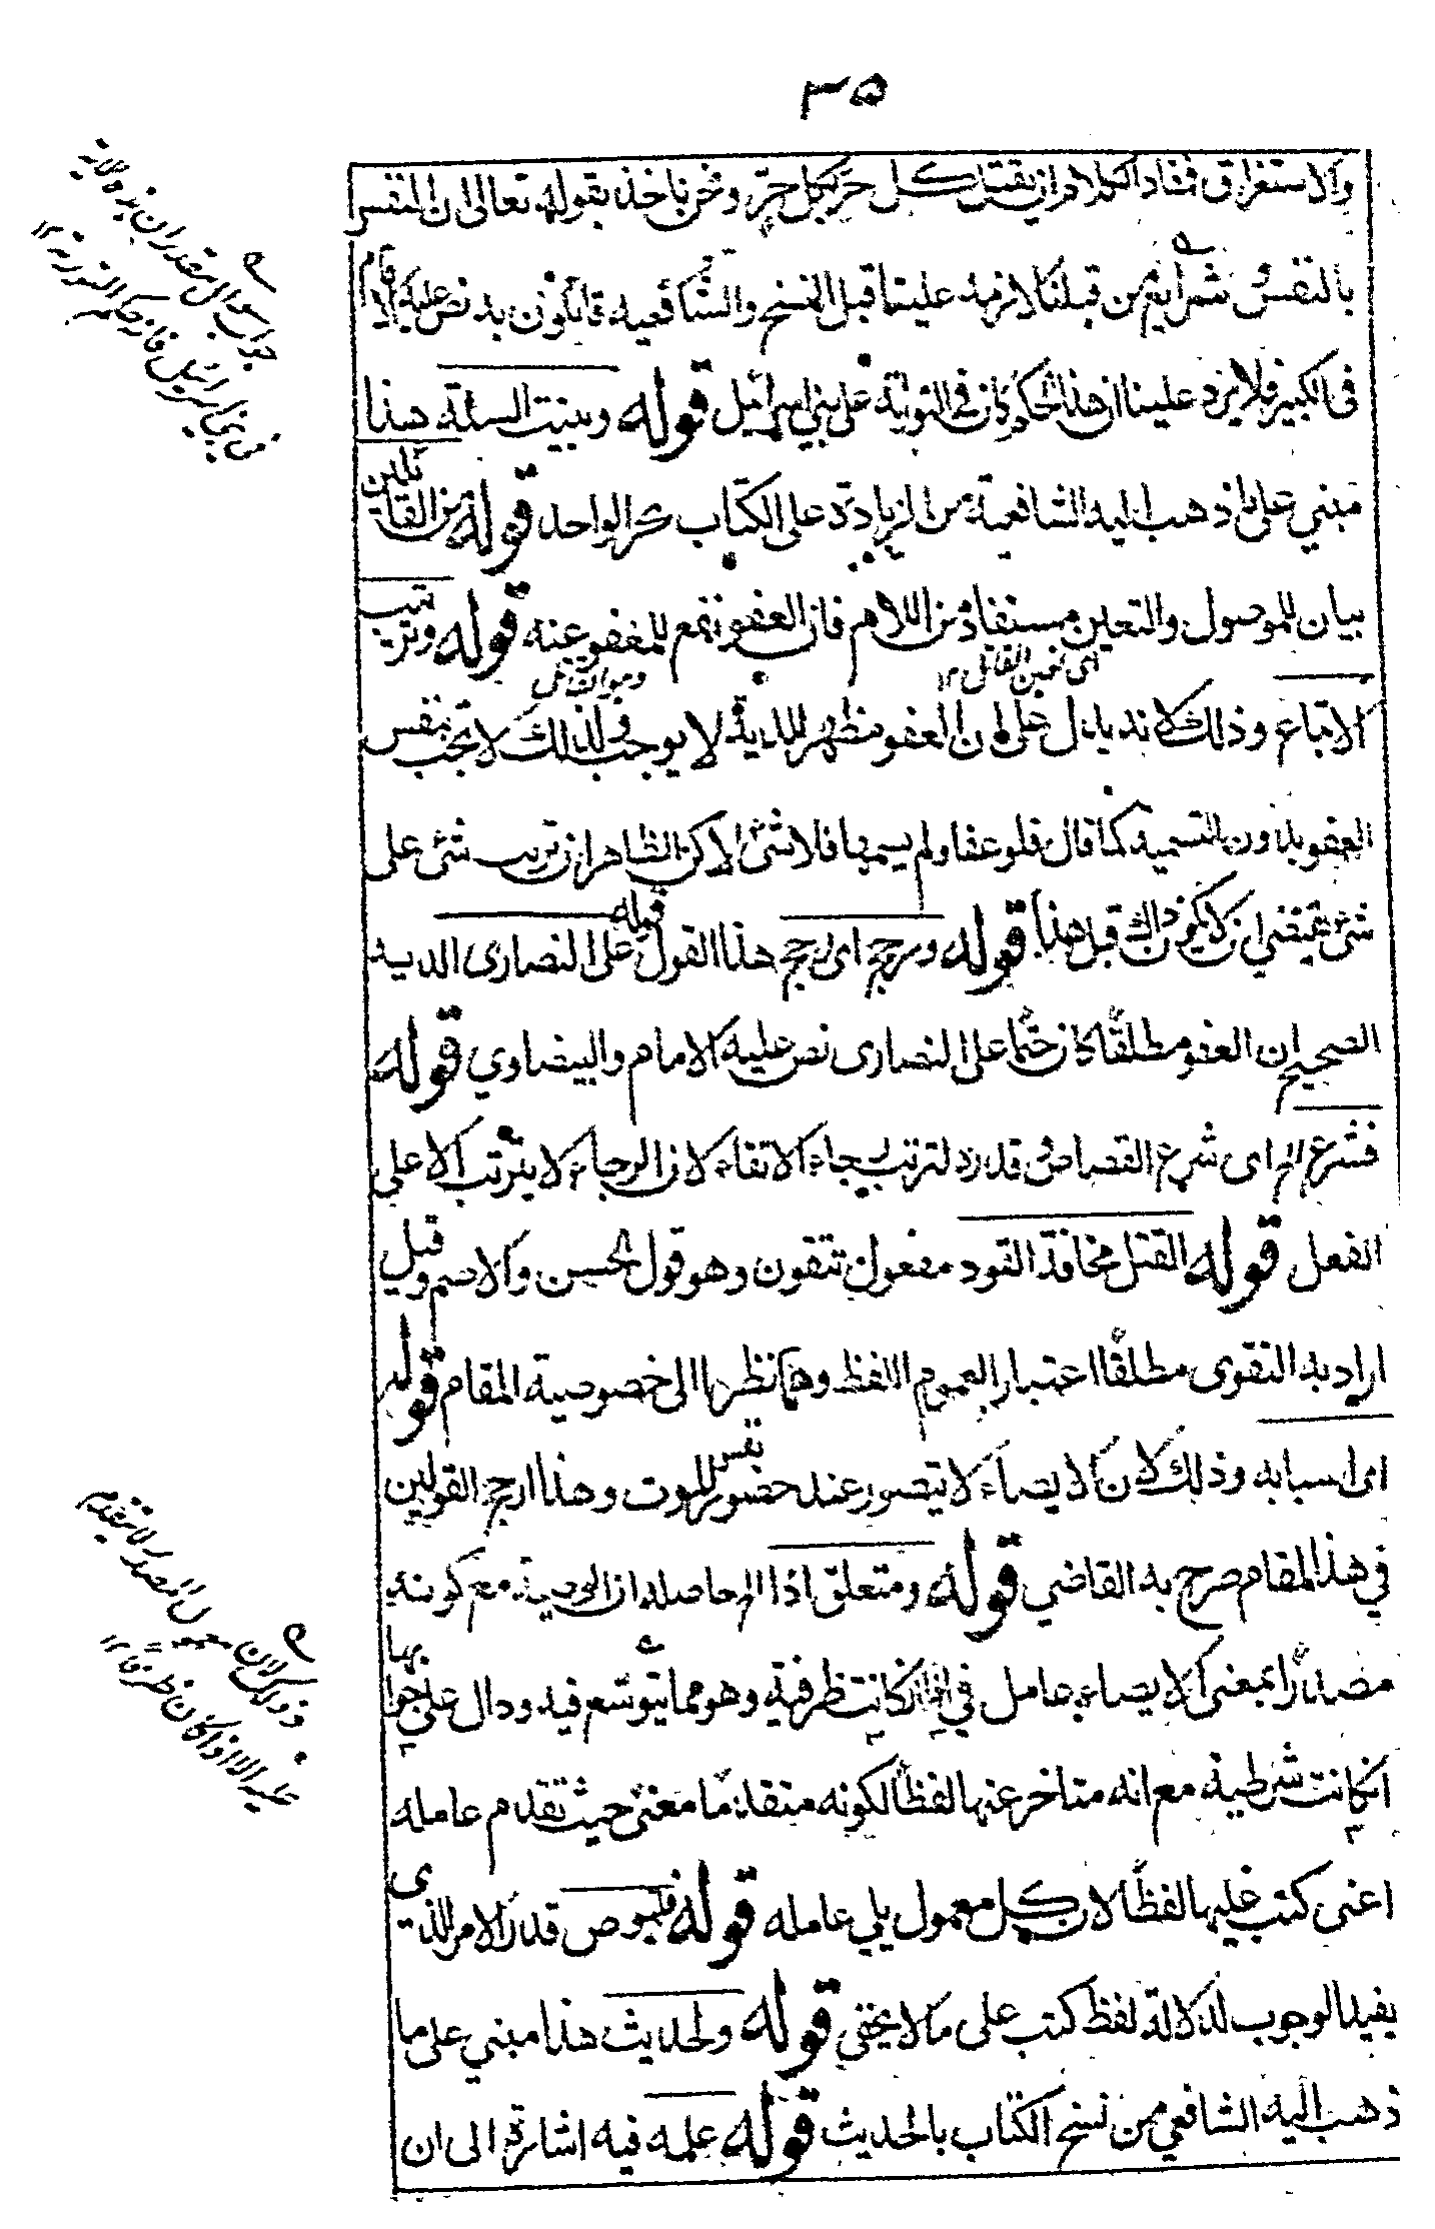 ٣٥
والاستغراق فمفاد الكلام ان يقتل كل حر بكل حر ونحن ناخذ بقوله تعالى ان النفس
بالنفس وشرايع من قبلنا لازمة علينا قبل الفسخ والشافعية قائلون به نص عليه الامام
فى الكبير فلا يرد علينا ان هذا الحكم كان فى التورية على بني اسرائيل قوله وبينت السنة هذا
مبني على ما ذهب اليه الشافعية من الزيادة على الكتاب بخبر الواحد قوله من القاتلين
بيان للموصول والتعين مستفاد من اللام فان العفو نافع للمعفو عنه قوله وترتيب
اى تعين القاتل ١٢
وهو القاتل
الاتباع وذلك لانه يدل على ان العفو مظهر للدية لا يوجب فى لذلك لا تجب بنفس
العفو بدون التسمية كما قال فلو عفا ولم يسمها فلا شئ الا كن الظاهر ان ترتيب شئ على
شئ يقتضي ان لا يكون ذلك قبل هذا قوله ورجح اى رجح هذا القول قوله على النصارى الدية
الصحيح ان العفو مطلقًا كان حتمًا على النصارى نص عليه الامام والبيضاوي قوله
فشرع الخ اى شرع القصاص قدره لترتب رجاء الاتقاء لان الرجاء لا يترتب الا على
الفعل قوله القتل مخافة القود مفعول تتقون وهو قول الحسن والاصم وقيل
اراد به التقوى مطلقًا اعتبار العموم اللفظ وهما نظرا الى خصوصية المقام قوله
اى اسبابه وذلك لان الايصاء لا يتصور عند حضور نفس الموت وهذا ارجح القولين
في هذا المقام صرح به القاضي قوله ومتعلق اذا الخ حاصله ان الوصية مع كونه
مصدرًا بمعنى الايصاء عامل في اذا ان كانت ظرفية وهو مما يتوسع فيه ودال على جوابها
ان كانت شرطية مع انه متاخر عنها لفظًا لكونه متقدمًا معنىً حيث تقدم عامله
اعنى كتب عليها لفظًا لان كل معمول يلي عامله قوله فليوص قدر الامر الذي
يفيد الوجوب لدلالة لفظ كتب على ما لا يخفى قوله ولحديث هذا مبني على ما
ذهب اليه الشافعي من نسخ الكتاب بالحديث قوله علمه فيه اشارة الى ان
جواب سوال مقدر ان هذه الاية
فى بنى اسرائيل فانه حكم التورية ١٢
وذلك لان معمول المصدر لا يتقدم
عليه الا اذا كان ظرفا ١٢